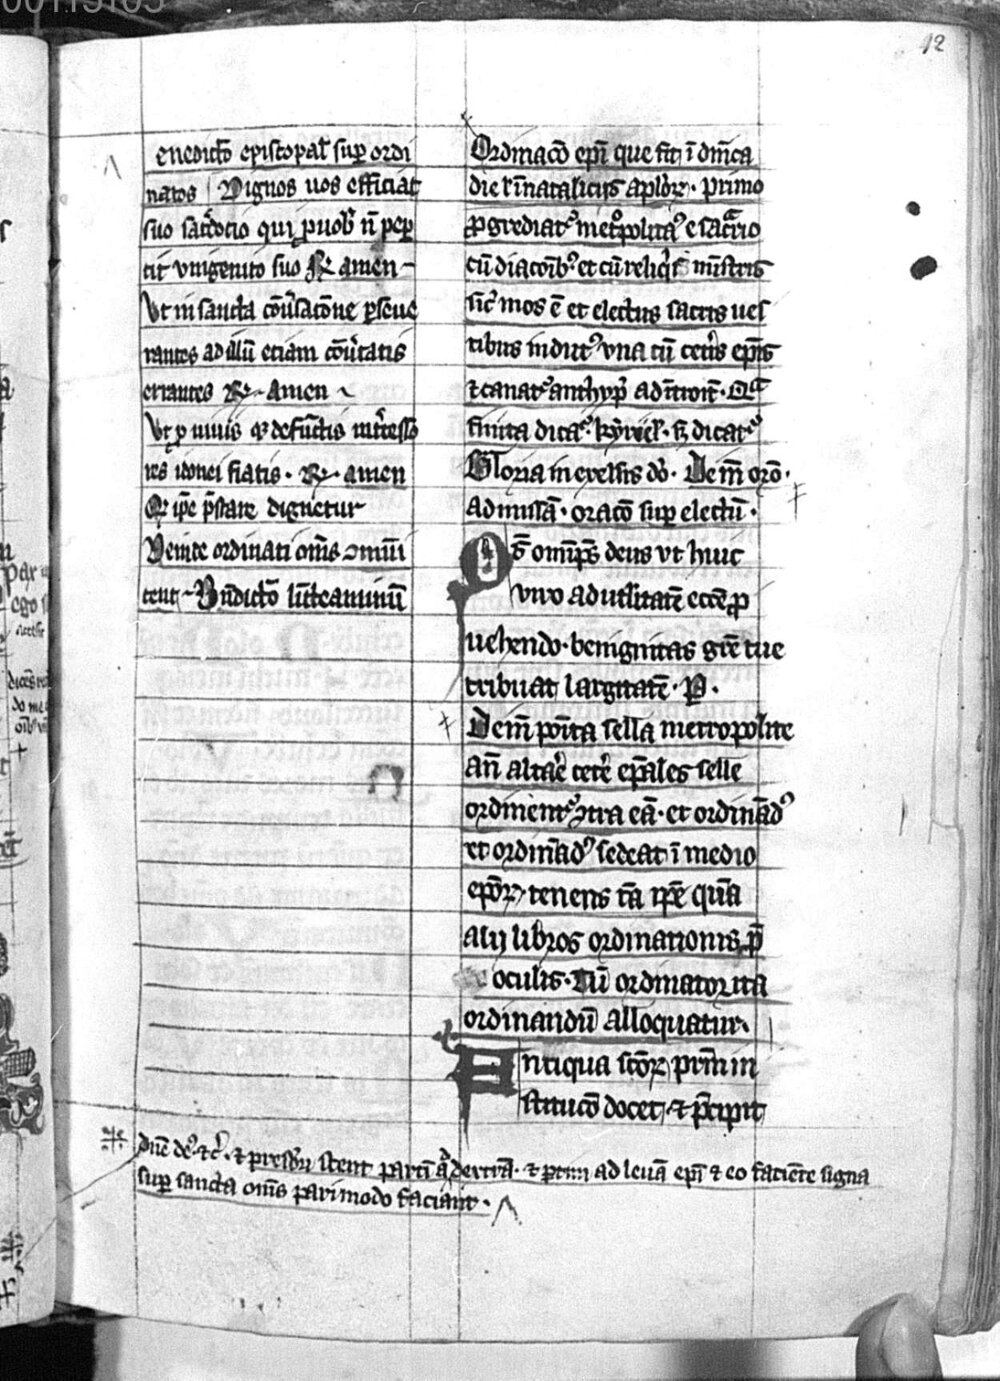 12
enedictō episcopał sup̱ ordi
natos Dignos uos efficiat
suo sac̄dotio qui p̱ uob̄ n̄ pep̱
cit vnigenito suo R̷ amen
Vt in sancta cōūsacōne p̱seue
rantes ad illū etiam cōūtatis
errantes R̷ Amen
Vt p̱ uiuis ⁊ defūctis int̄cesso
res idonei fiatis · R̷ · amen
ip̄e p̄stare dignetur
Deinde ordinati om̄s
Ordinacō ep̄i que fit ī dn̄ica
die ł ī natalicijs ap̄loꝝ · primo
ꝓgrediatᷣ met̄politaᷣ e sac̄rio
cū diaconibꝫ et cū reliq̄s minist̄is
sic̄ mos ē et electus sacris ues
tibus indutᷣ vna cū cet̄is ep̄is
⁊ canatᷣ anthyp̄ ad int̄oit̄ · Qᵃ
finita dicatᷣ kyriel · ⁊ dicatᷣ
Gloria in excelsis dō · Deīn orō ·
Ad missā · oracō sup̱ electū ·
Ad̄ om̄ps̄ deus vt huic
viro ad utilitatē ecc̄e ꝓ
uehendo · benignitas gr̄e tue
tribuat largitatē · P̱ ·
Deīn poīta sella metropolite
an̄ altaē cet̄e ep̄ales selle
ordinentᷣ ꝯtra eā · et ordināđꝰ
et ordināđꝰ sedeat ī medio
ep̄oꝝ · tenens tā ip̄e quā
alij libros ordinationis p̄
oculis · Tū ordinator ita
ordinandū alloquatur
Antiqua sc̄oꝝ pr̄m in
stitucō docet ⁊ p̄cipit
dn̄e dꝰ ⁊c̄ · ⁊ presb̄ri stent partī ad dextrā · ⁊ p̱tim ad leuā ep̄i ⁊ eo faciēte signa
sup̱ sancta om̄s pari modo faciant ·